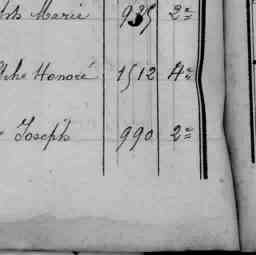 Marie 935 2=
Honoré 1512 4=
Joseph 990 2=